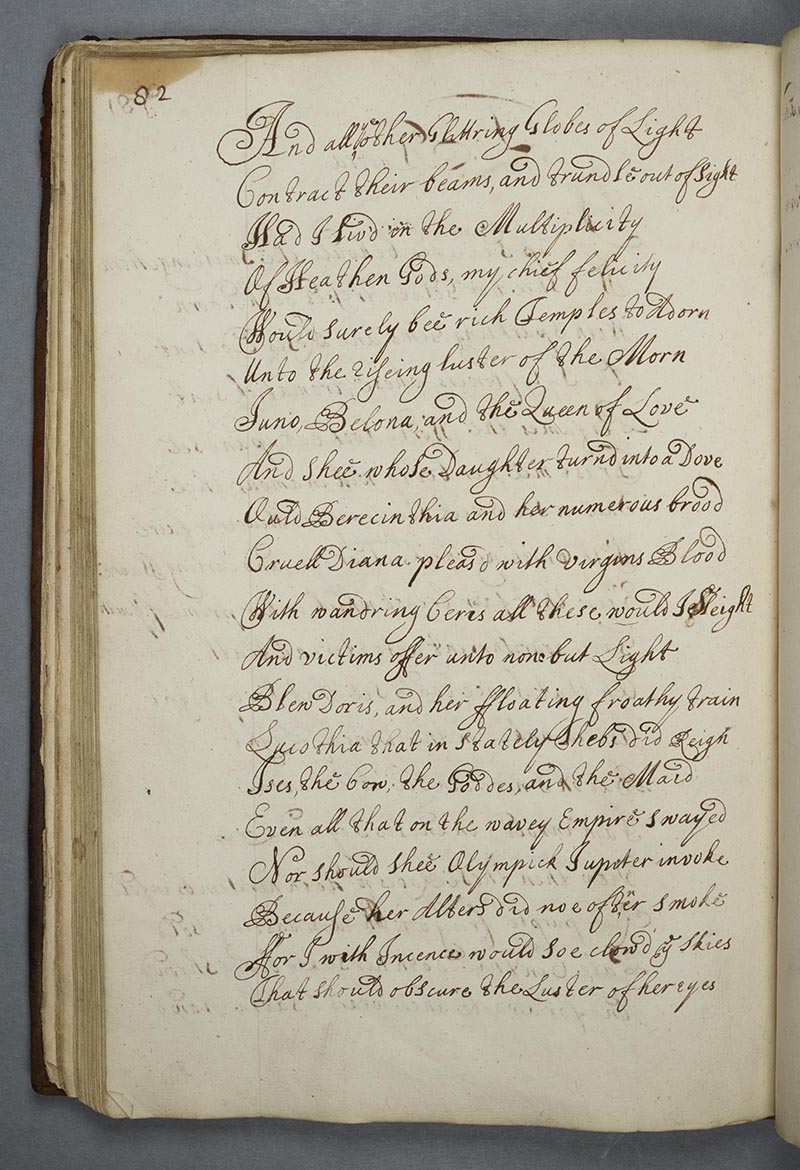 82
And all ye other Glittring Globes of Light
Contract their beams, and trundle out of sight
Had I livd in the Multiplicity
Of Heathen Gods, my chief felicity
Would surely bee rich Temples to Adorn
Unto the riseing luster of the Morn
Juno, Belona, and the Queen of Love
And shee whose Daughter turnd into a Dove
Ould Berecinthia and her numerous brood
Cruell Diana pleasd with virgins Blood
With wandring Ceres all these would I sleight
And victims offer unto none but Light
Blew Doris, and her ffloating froathy train
Lucothia that in stately Thebs did Reign
Ises, the Cow, the Goddes, and the Maid
Even all that on the wavey Empire swayed
Nor should shee Olympick Jupiter invoke
Because her Alters did noe ofter smoke
ffor I with Incence would soe clowd ye skies
That should obscure the Luster of her eyes